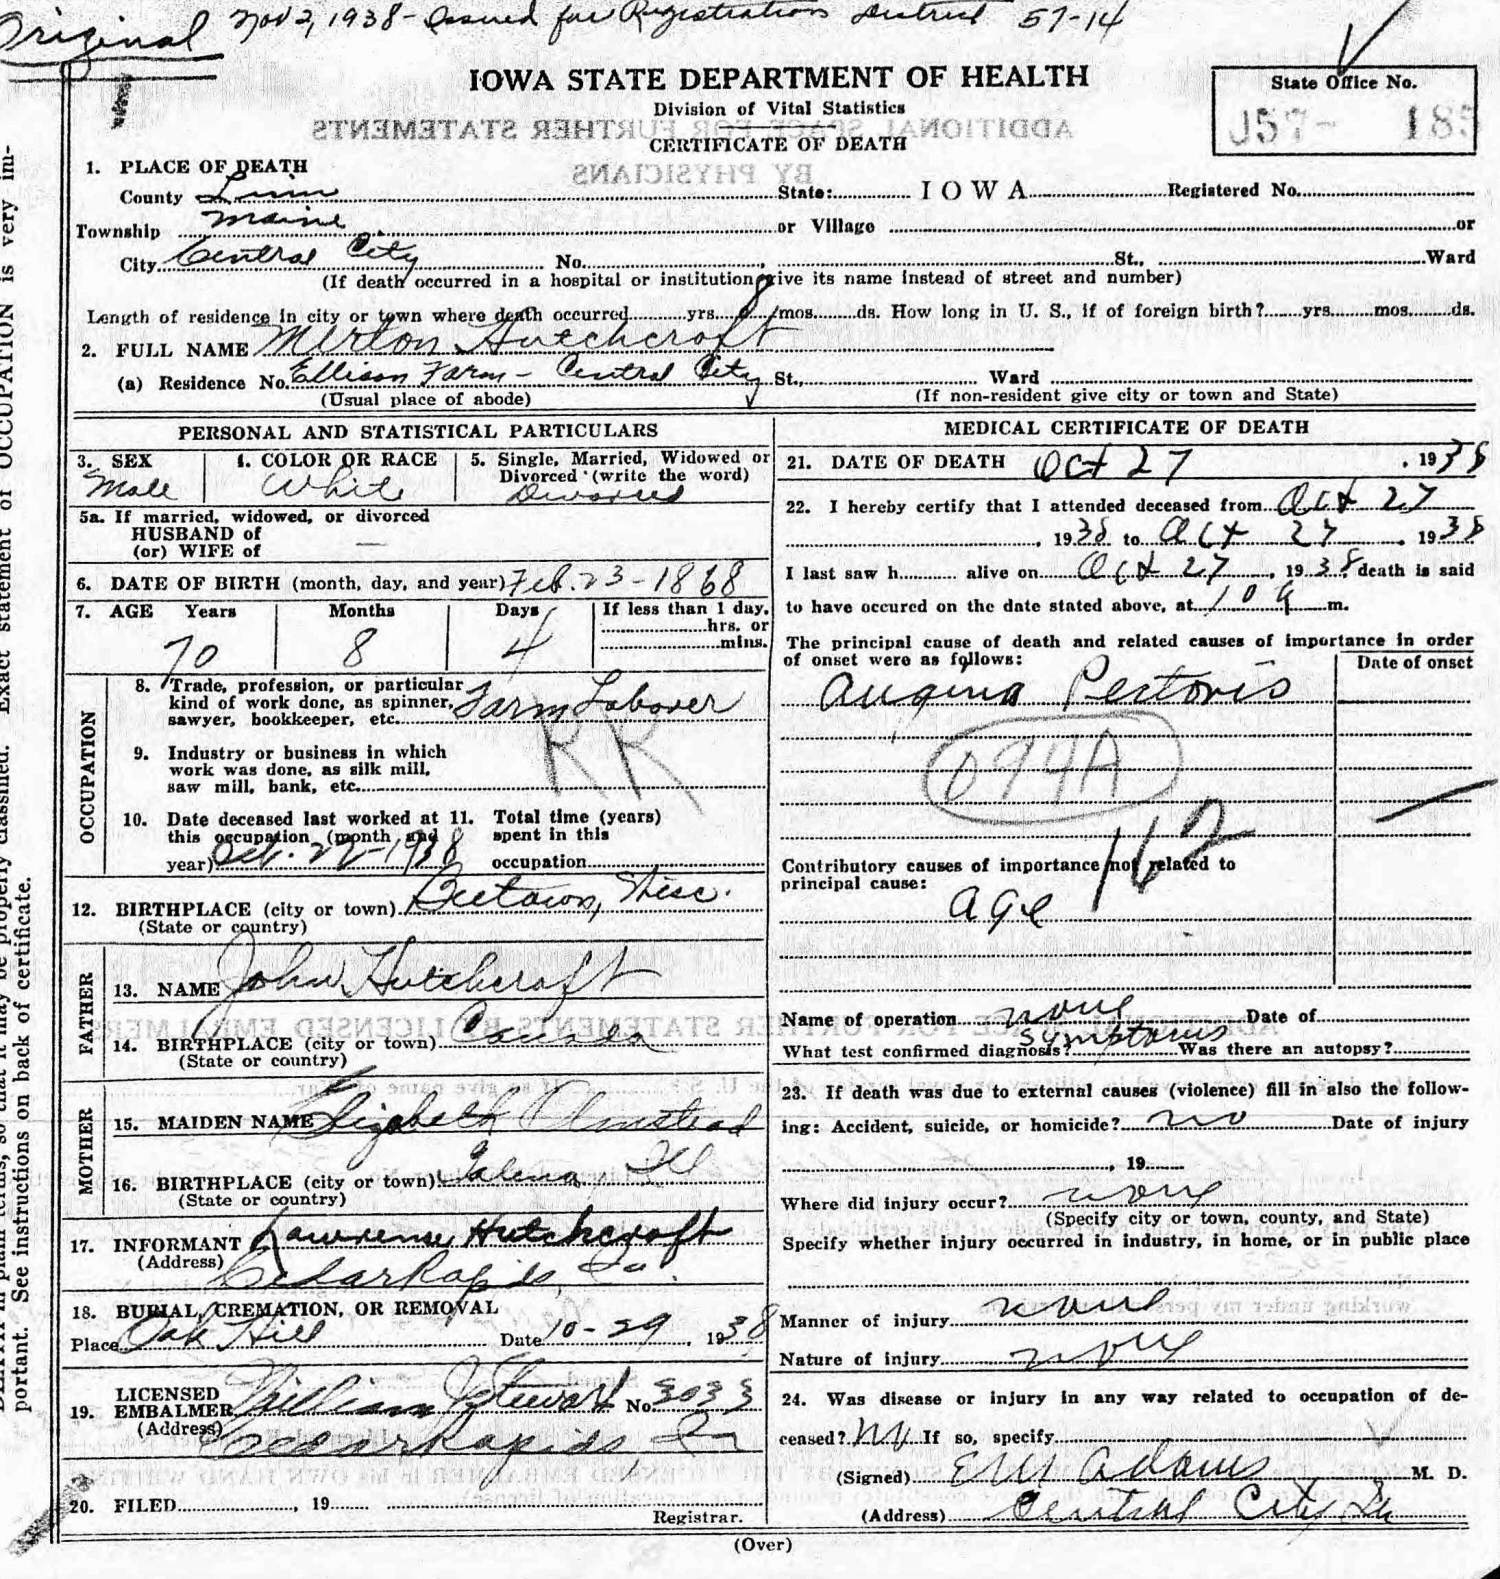 Original Nov 2, 1938 - Issued for Registration District 57-14
IOWA STATE DEPARTMENT OF HEALTH
Division of Vital Statistics
CERTIFICATE OF DEATH
State Office No.
J57- 185
ADDITIONAL SPACE FOR FURTHER STATEMENTS
BY PHYSICIANS
1. PLACE OF DEATH
County Linn State: IOWA Registered No.
Township Maine or Village or
City Central City No. , St., Ward
(If death occurred in a hospital or institution give its name instead of street and number)
Length of residence in city or town where death occurred yrs. 8 mos. ds. How long in U. S., if of foreign birth? yrs. mos. ds.
2. FULL NAME Merton Hutchcroft
(a) Residence No. Ellison Farm - Central City St., Ward
(Usual place of abode) (If non-resident give city or town and State)
PERSONAL AND STATISTICAL PARTICULARS
3. SEX 4. COLOR OR RACE 5. Single, Married, Widowed or
Divorced (write the word)
Male White Divorced
5a. If married, widowed, or divorced
HUSBAND of
(or) WIFE of —
6. DATE OF BIRTH (month, day, and year) Feb. 23 - 1868
7. AGE Years Months Days If less than 1 day,
hrs. or
mins.
70 8 4
OCCUPATION
8. Trade, profession, or particular
kind of work done, as spinner,
sawyer, bookkeeper, etc. Farm Laborer
RR
9. Industry or business in which
work was done, as silk mill,
saw mill, bank, etc.
10. Date deceased last worked at
this occupation (month and
year) Oct. 22 - 1938
11. Total time (years)
spent in this
occupation
12. BIRTHPLACE (city or town) Beetown, Wisc.
(State or country)
FATHER
13. NAME John Hutchcroft
14. BIRTHPLACE (city or town) Canada
(State or country)
MOTHER
15. MAIDEN NAME Elizabeth Olmstead
16. BIRTHPLACE (city or town) Galena, Ill
(State or country)
17. INFORMANT Lawrence Hutchcroft
(Address) Cedar Rapids, Ia.
18. BURIAL, CREMATION, OR REMOVAL
Place Oak Hill Date 10-29, 1938
19. LICENSED
EMBALMER William J Stewart No. 3033
(Address) Cedar Rapids, Ia
20. FILED , 19
Registrar.
MEDICAL CERTIFICATE OF DEATH
21. DATE OF DEATH Oct 27, 1938
22. I hereby certify that I attended deceased from Oct 27
, 1938 to Oct 27, 1938
I last saw h alive on Oct 27, 1938, death is said
to have occured on the date stated above, at m.
The principal cause of death and related causes of importance in order
of onset were as follows: Date of onset
Angina Pectoris
094A
162
Contributory causes of importance not related to
principal cause:
age
Name of operation none Date of
What test confirmed diagnosis? Symptoms Was there an autopsy?
23. If death was due to external causes (violence) fill in also the follow-
ing: Accident, suicide, or homicide? no Date of injury
, 19
Where did injury occur? none
(Specify city or town, county, and State)
Specify whether injury occurred in industry, in home, or in public place
Manner of injury none
Nature of injury none
24. Was disease or injury in any way related to occupation of de-
ceased? No If so, specify
(Signed) Adams M. D.
(Address) Central City, Ia
(Over)
portant. See instructions on back of certificate.
Exact statement of OCCUPATION is very im-